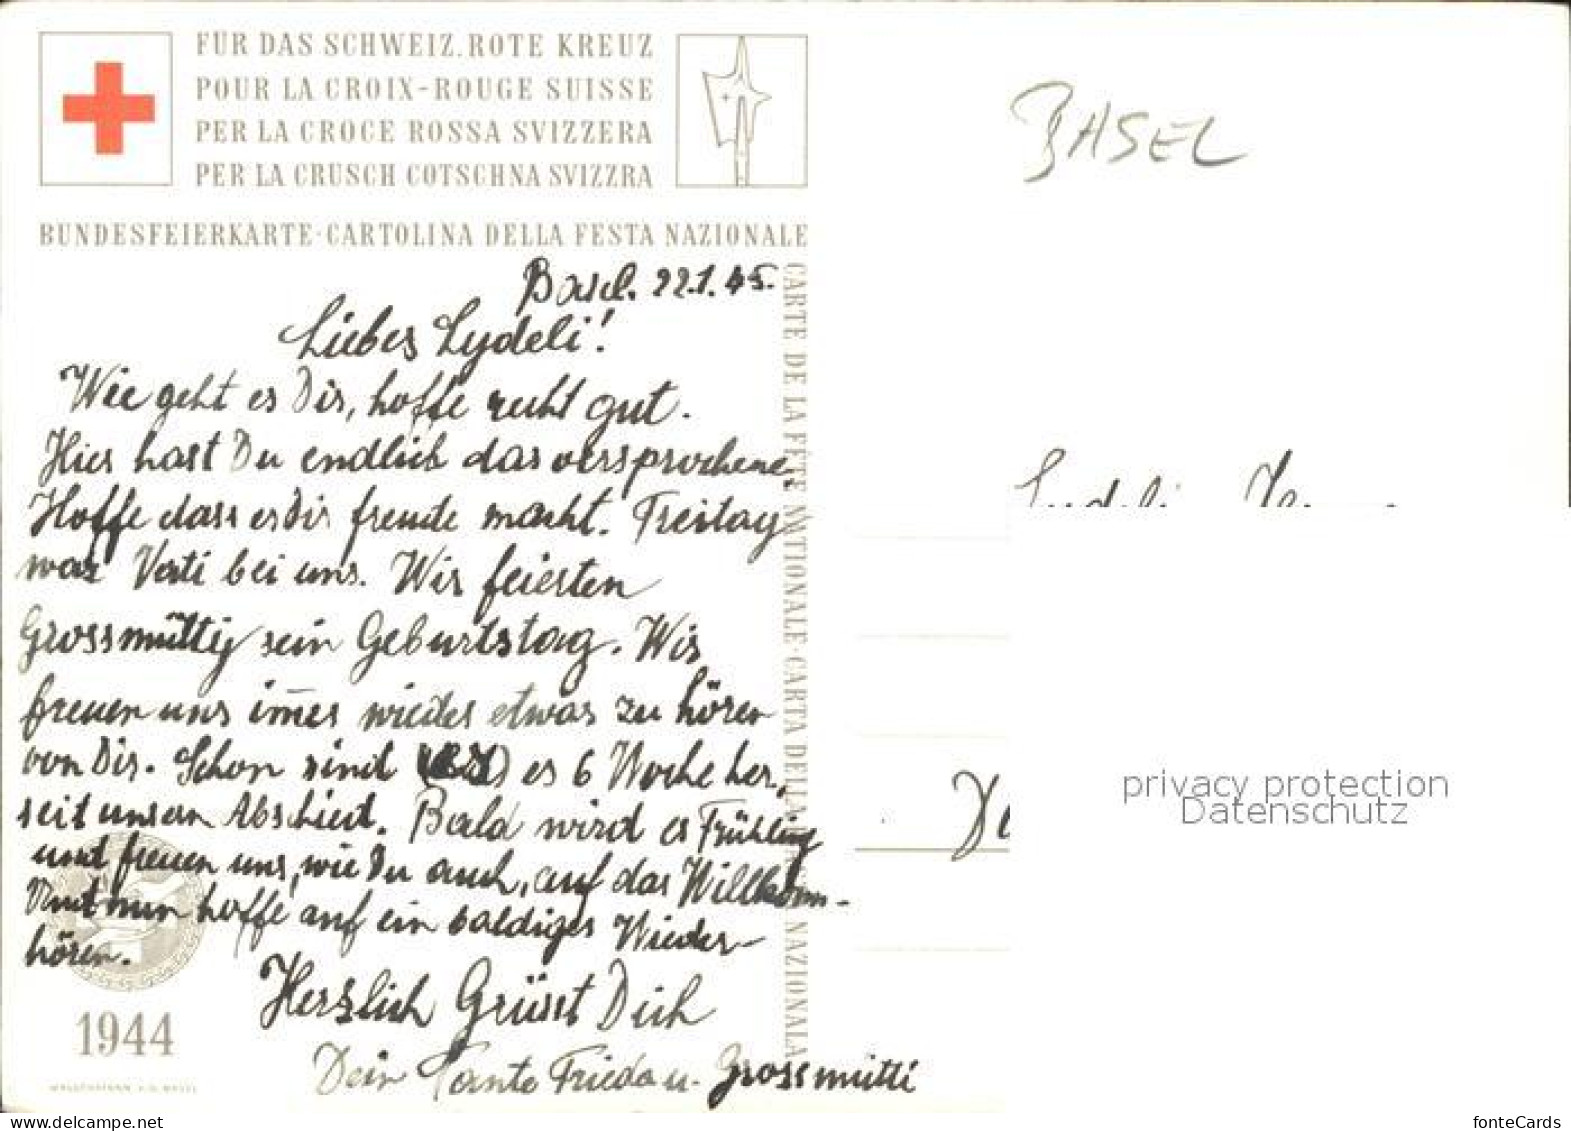 FÜR DAS SCHWEIZ. ROTE KREUZ
POUR LA CROIX-ROUGE SUISSE
PER LA CROCE ROSSA SVIZZERA
PER LA CRUSCH COTSCHNA SVIZZRA
BUNDESFEIERKARTE · CARTOLINA DELLA FESTA NAZIONALE
CARTE DE LA FÊTE NATIONALE · CARTA DELLA NAZIONALA
BASEL
Basel. 22.1.45.
Liebes Lydeli!
Wie geht es Dir, hoffe recht gut.
Hier hast Du endlich das versprochene.
Hoffe dass es Dir freude macht. Freitag
war Vati bei uns. Wir feierten
Grossmüttis sein Geburtstag. Wir
freuen uns im̄er wieder etwas zu hören
von Dir. Schon sind es 6 Woche her,
seit unsern Abschied. Bald wird es Frühling
und freuen uns, wie Du auch, auf das Willkom-
nun hoffe auf ein baldiges Wieder-
hören.
Herzlich Grüsst Dich
Dein Tante Frieda u. Grossmutti
1944
Lydeli
privacy protection
Datenschutz
delcampe.net
fonteCards